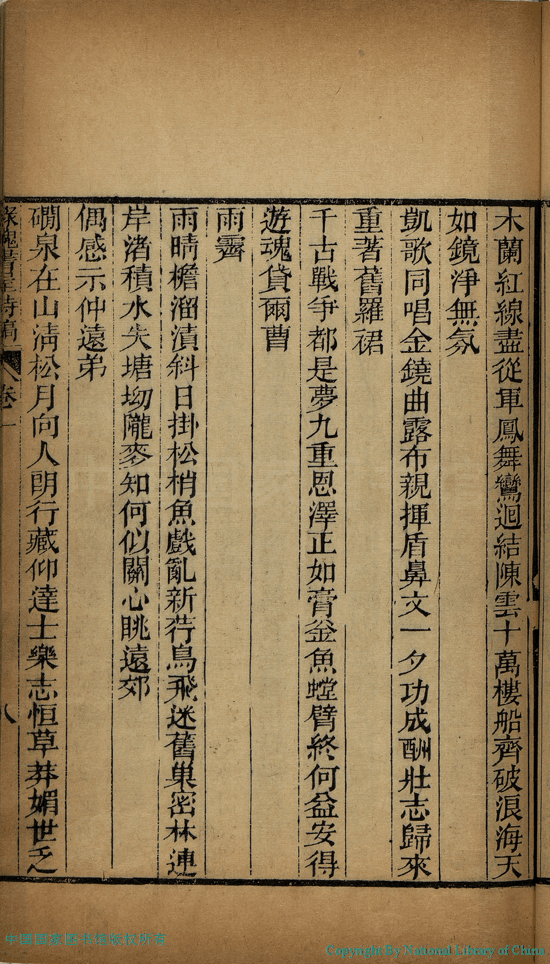 木蘭紅線盡從軍鳳舞鸞迴結陳雲十萬樓船齊破浪海天
如鏡淨無氛
凱歌同唱金鐃曲露布親揮盾鼻文一夕功成酬壯志歸來
重著舊羅裙
千古戰爭都是夢九重恩澤正如膏釜魚螳臂終何益安得
遊魂貸爾曹
雨霽
雨晴檐溜漬斜日掛松梢魚戲亂新荇鳥飛迷舊巢密林連
岸渚積水失塘坳隴麥知何似關心眺遠郊
偶感示仲遠弟
磵泉在山淸松月向人朗行藏仰達士樂志恒草莽媚世乏
槐書屋詩稿
卷一
八
中国国家图书馆版权所有
Copyright By National Library of China